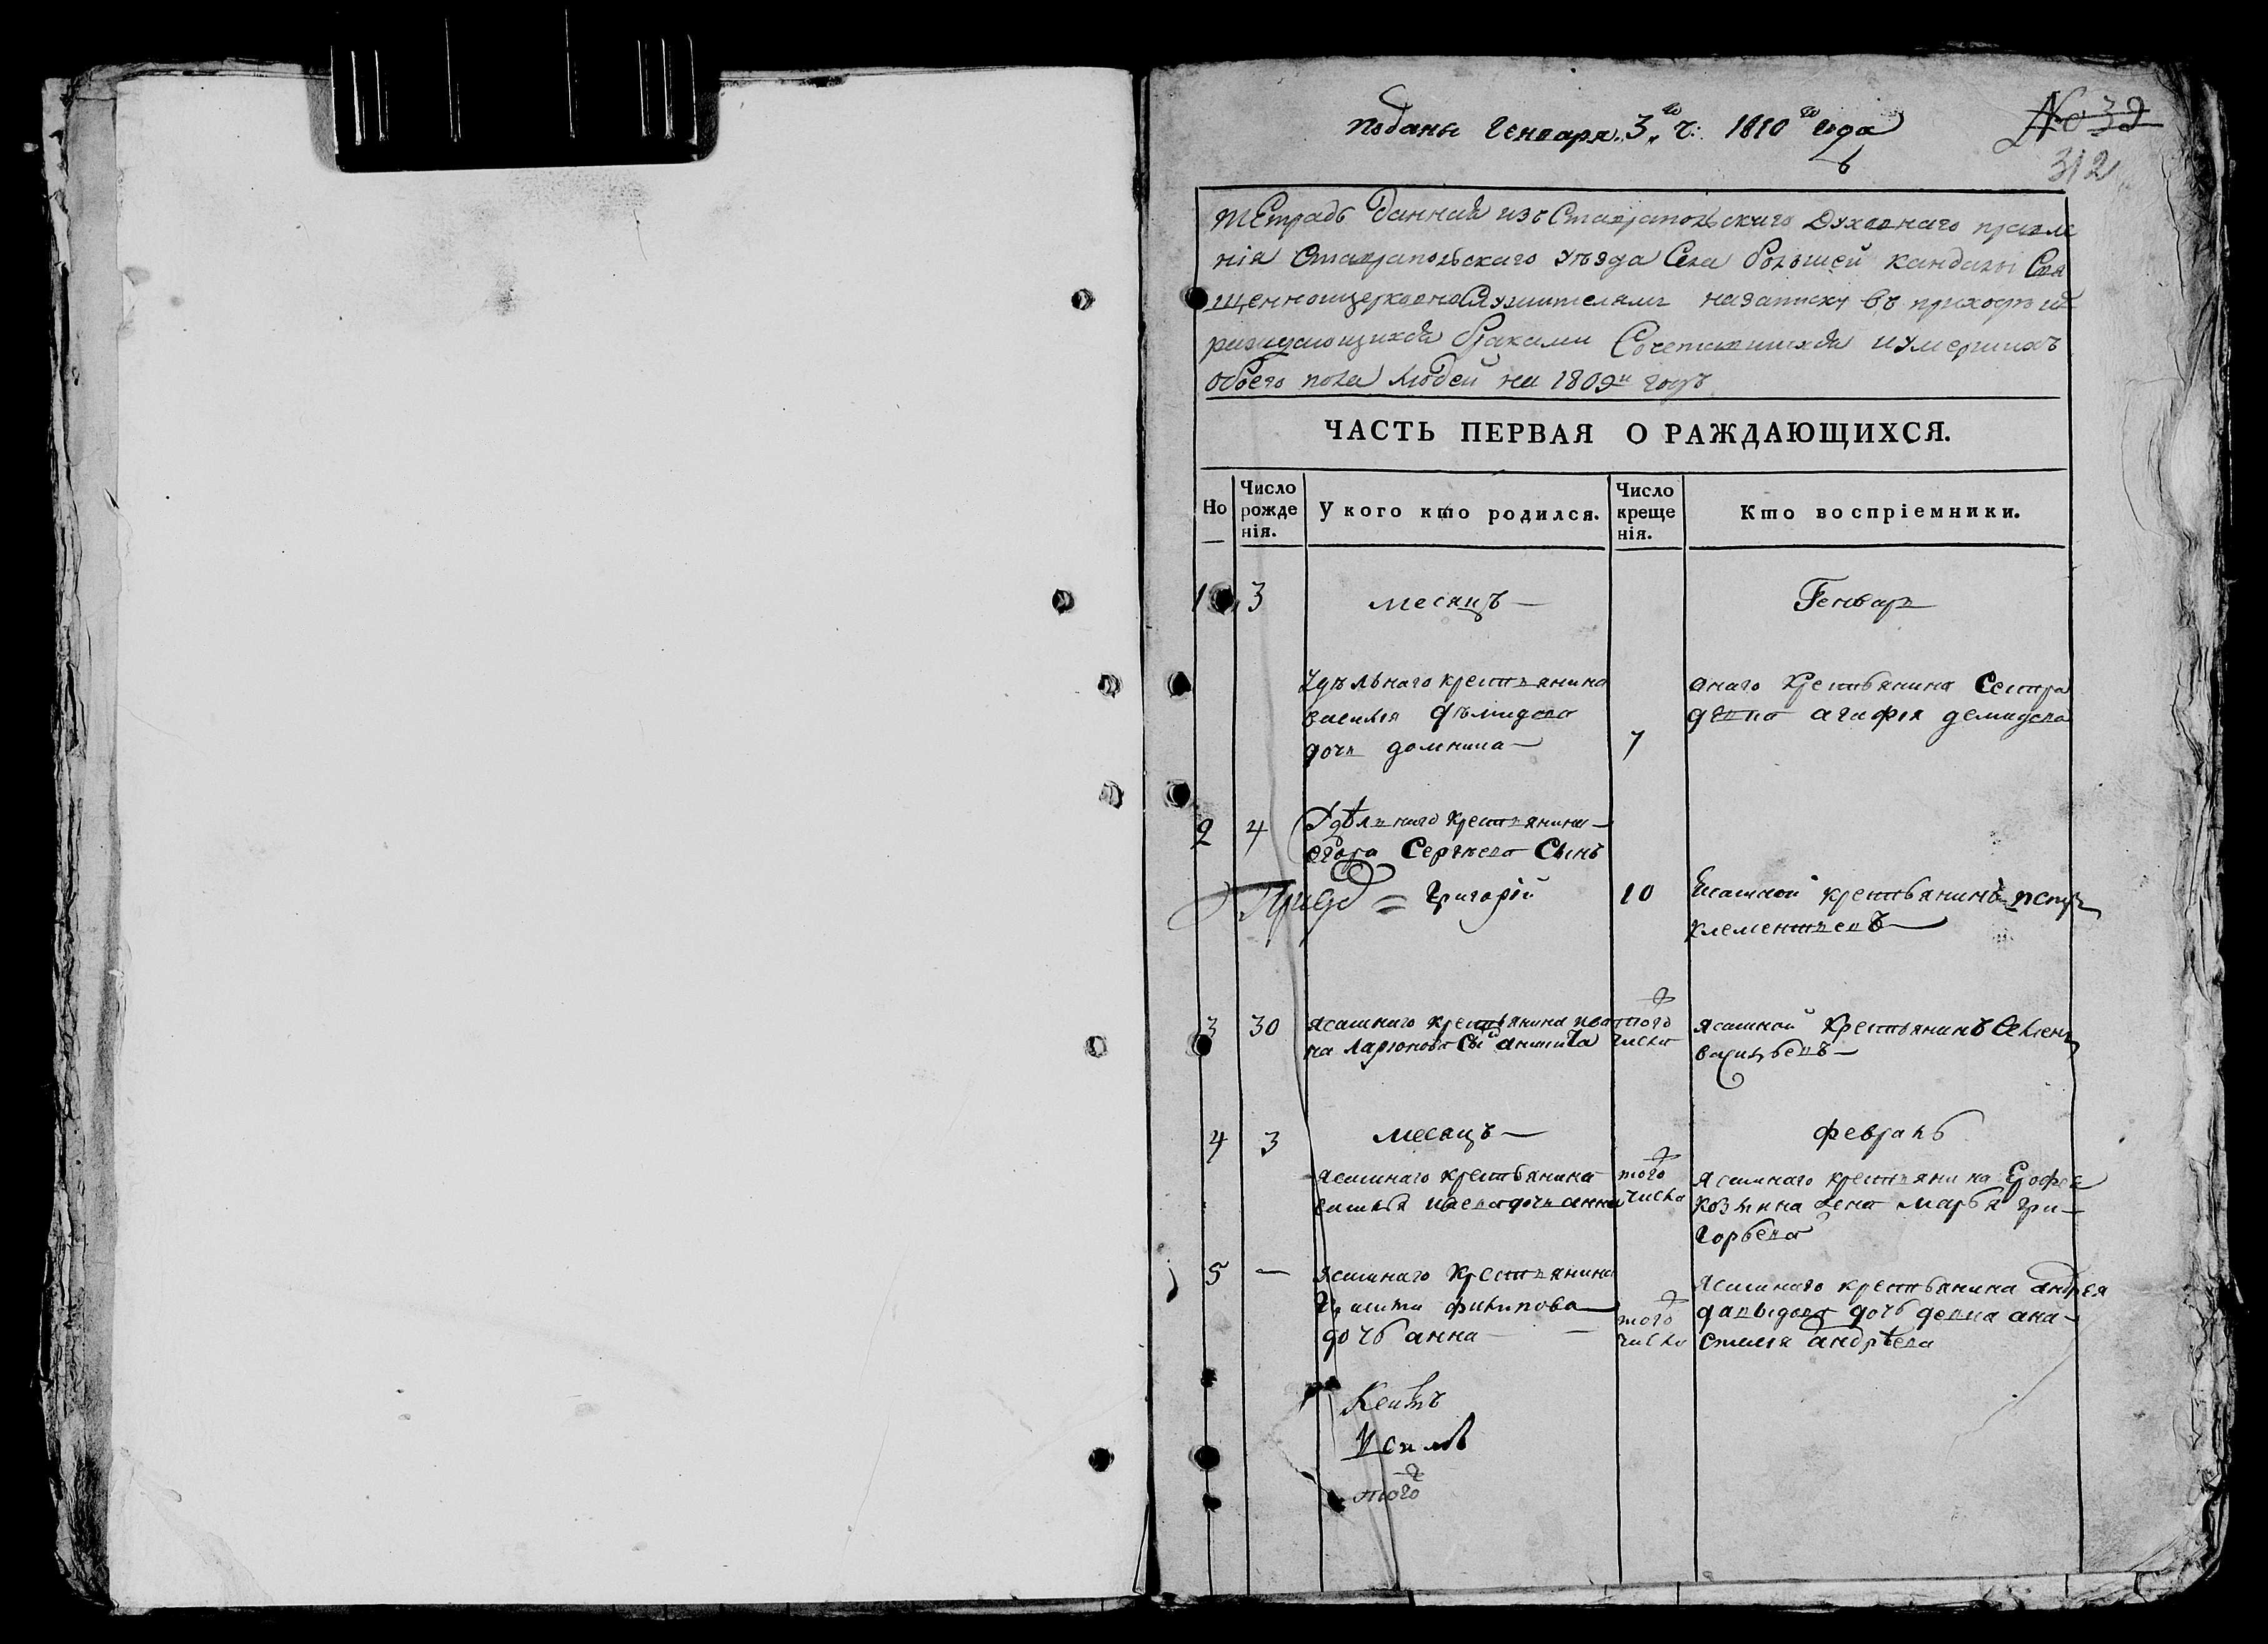 поданы Генваря 3го ч: 1810го года
No 32
312
Тетрадь данная изъ Ставропольскаго духовнаго правле
нія Ставропольскаго уѣзда Села большей кандалы Свя
щенноцерковнослужителямъ назаписку въ приходѣ ихъ
раждающихся браками Сочетавшихся иумершихъ
обоего пола людей на 1809й годъ
ЧАСТЬ ПЕРВАЯ О РАЖДАЮЩИХСЯ.
Но
Число рожде нія.
У кого кто родился.
Число креще нія.
Кто воспріемники.
1 3 месяцъ — Генварь
Удѣльнаго крестьянина
василья дѣмидова
дочь домнина —
7
онаго Крестьянина Сестра
девка агафія демидова
2 4 Удѣльнаго крестьянина —
егора Сергѣева Сынъ
Григорій
10
ясашной крестьянинъ петръ
клементьевъ
3 30 ясашнаго крестьянина
на ларионова Сынъ аникита
того числа
ясашной крестьянинъ Семенъ
васильевъ —
4 3 месяцъ — февраль
ясашнаго крестьянина
василья дочь анна
того числа
ясашнаго крестьянина Ерофея
козмина жена марья гри—
горьева
5 — ясашнаго крестьянина
Никиты филипова
дочь анна —
того числа
ясашнаго крестьянина андрея
давыдова дочь девка ана-
стасія андрѣева
того